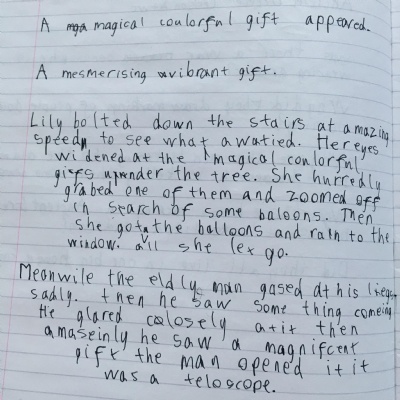 A magical coulorful gift appeared.
A mesmerising vibrant gift.
Lily bolted down the stairs at amazing
speed to see what awatied. Her eyes
widened at the magical coulorful
gifs under the tree. She hurredly
grabed one of them and zoomed off
in search of some baloons. Then
she got the balloons and ran to the
window. all she let go.
Meanwile the eldly man gased at his
sadly. then he saw some thing comeing
He glared colosely at it then
amaseinly he saw a magnifcent
gift the man opened it it
was a teloscope.